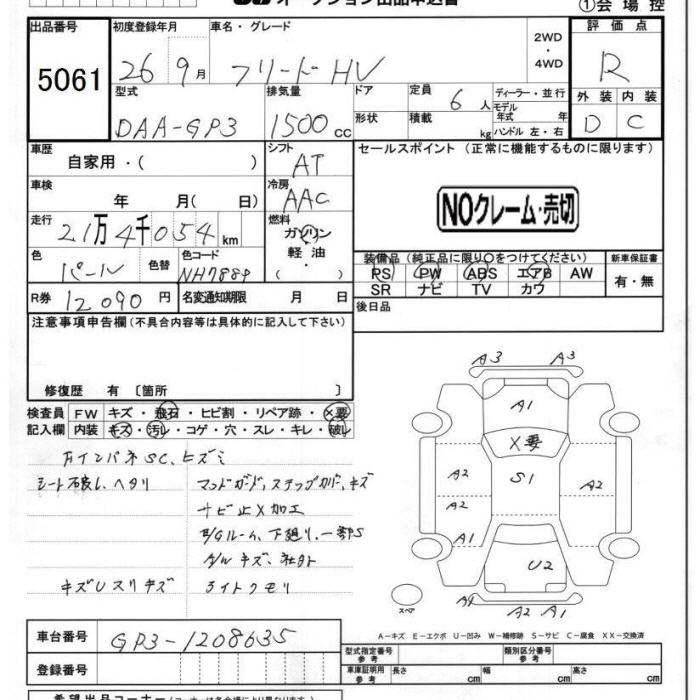 オークション出品申込書
①会場控
出品番号 初度登録年月 車名・グレード 2WD ・ 4WD 評価点
5061 26 9月 フリード HV R
型式 排気量 ドア 定員 6人 ディーラー・並行 外装 内装
DAA-GP3 1500cc 形状 積載 kg モデル年式 年 ハンドル 左・右 D C
車歴 自家用・( ) シフト AT セールスポイント (正常に機能するものに限ります)
車検 年 月( 日) 冷房 AAC NOクレーム・売切
走行 21万4千054km 燃料 ガソリン・軽油・
色 パール 色替 色コード NH788P 装備品(純正品に限り○をつけてください) 新車保証書
PS PW ABS エアB AW 有・無
SR ナビ TV カワ
R券 12,090円 名変通知期限 月 日 後日品
注意事項申告欄(不具合内容等は具体的に記入して下さい)
修復歴 有 〔箇所 〕
検査員 FW キズ・飛石・ヒビ割・リペア跡・×要
記入欄 内装 キズ・汚レ・コゲ・穴・スレ・キレ・破レ
カインパネSC、ヒズミ
シート破レ、ヘタリ マッドガード,ステップカバー,キズ
ナビ止メ加工
E/Gルーム、下廻り、一部PS
A/W キズ、社外
キズUスリキズ ライトクモリ
A3 A3
A1
X要
A2 S1 A2
A2
A1
U2
スペア A1 A2 A1
車台番号 GP3-1208635
A-キズ E-エクボ U-凹み W-補修跡 S-サビ C-腐食 XX-交換済
登録番号 型式指定番号 参考 類別区分番号 参考
車庫証明用 参考 長さ cm 幅 cm 高さ cm
希望出品コーナー